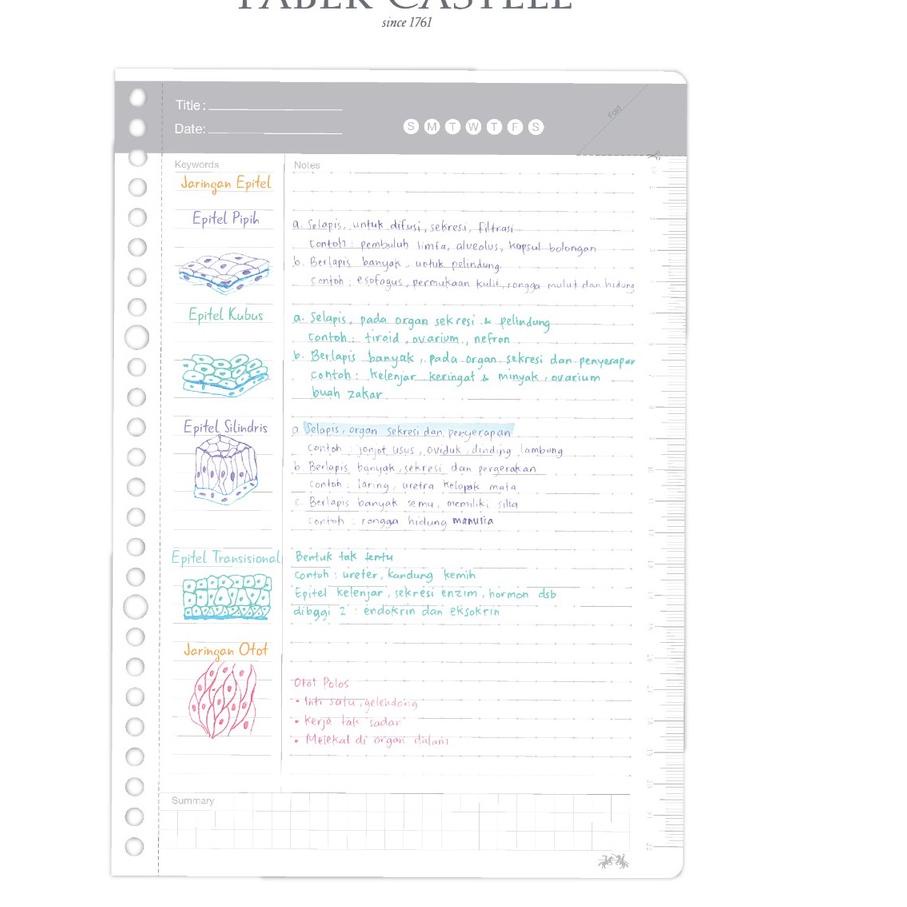 FABER CASTELL
since 1761
Title:
Date:
S M T W T F S
Fold
Keywords
Notes
Jaringan Epitel
Epitel Pipih
a. Selapis, untuk difusi, sekresi, filtrasi
contoh : pembuluh limfa, alveolus, kapsul bolongan
b. Berlapis banyak, untuk pelindung
contoh : esofagus, permukaan kulit, rongga mulut dan hidung
Epitel Kubus
a. Selapis, pada organ sekresi & pelindung
contoh : tiroid, ovarium, nefron
b. Berlapis banyak, pada organ sekresi dan penyerapan
contoh : kelenjar keringat & minyak, ovarium
buah zakar
Epitel Silindris
a Selapis, organ sekresi dan penyerapan
contoh : jonjot usus, oviduk, dinding lambung
b Berlapis banyak, sekresi dan pergerakan
contoh : laring, uretra kelopak mata
c. Berlapis banyak semu, memiliki silia
contoh : rongga hidung manusia
Epitel Transisional
Bentuk tak tentu
contoh : ureter, kandung kemih
Epitel kelenjar, sekresi enzim, hormon dsb
dibagi 2 : endokrin dan eksokrin
Jaringan Otot
Otot Polos
• Inti satu, gelendong
• Kerja tak sadar
• Melekat di organ dalam
Summary